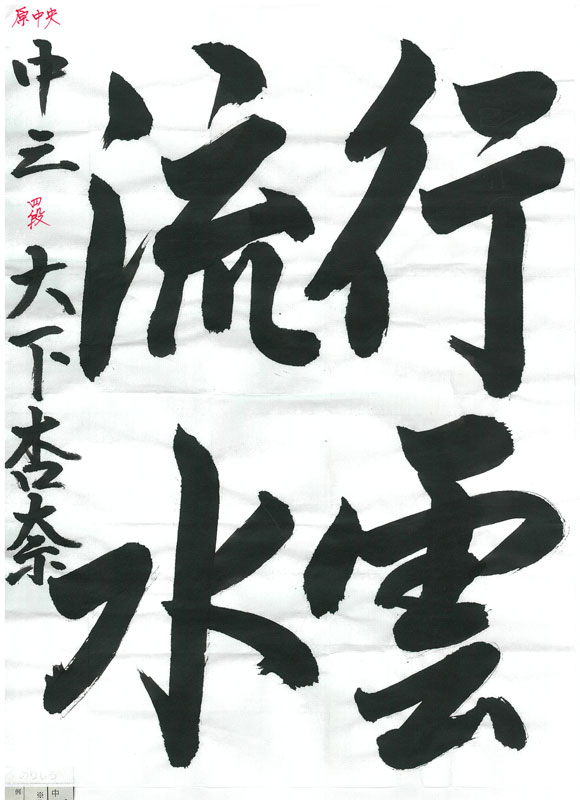 行雲
流水
原中央
中三 四段 大下杏奈
例
※
中